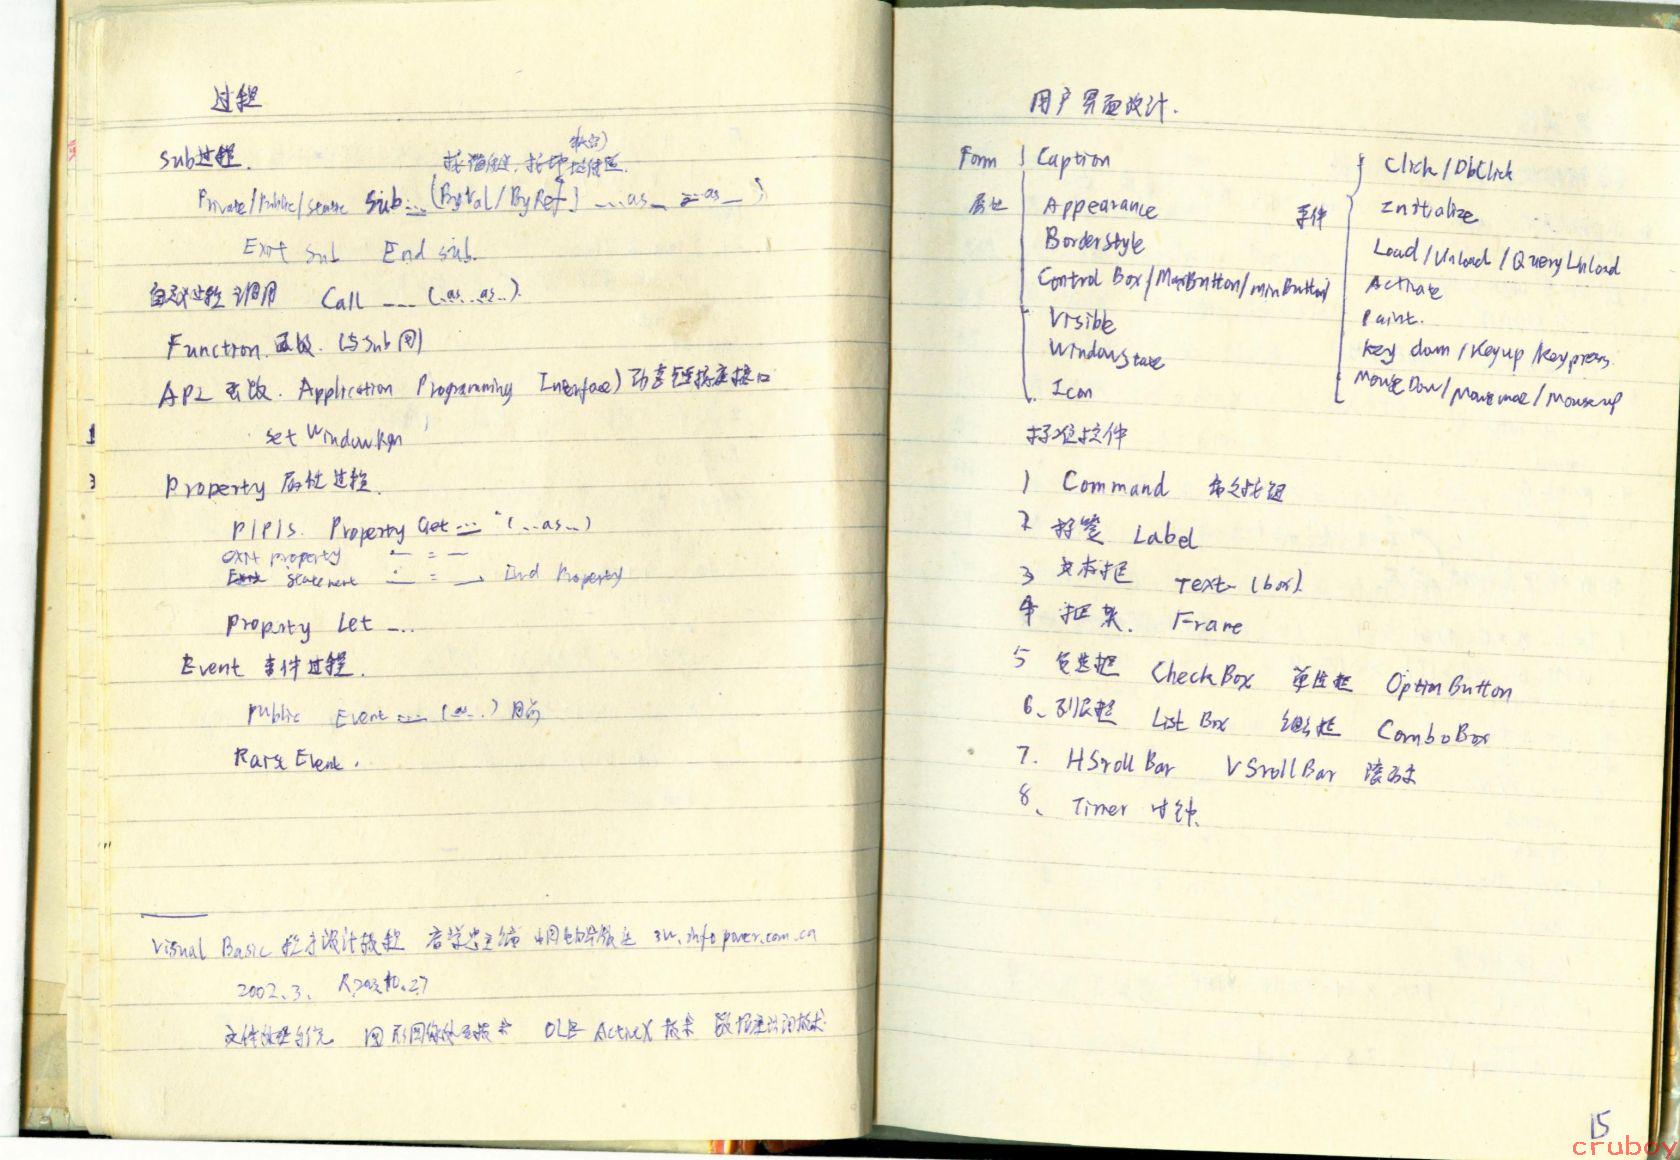 过程
Sub过程.
(缺省)
按值传递. 按地址传递.
Private/Public/Static Sub ... (ByVal/ByRef) ... as _ = as _ )
Exit Sub End sub.
自定义过程调用 Call ... (.as. .as..).
Function 函数. (与Sub同)
API 函数. Application Programming Interface) 动态链接库接口
set WindowRgn
1
3
Property 属性过程.
P/P/S. Property Get ... (...as...)
exit property _ = _
statement _ = _ End Property
Property Let ...
Event 事件过程.
Public Event ... (as..) 同前
Raise Event.
Visual Basic 程序设计教程 主编 中国电力出版社 3w.infopower.com.cn
2002.3. 10.27
文件处理 图形图像处理技术 OLE ActiveX 技术 数据库访问技术
用户界面设计.
Form
属性
Caption
Appearance
BorderStyle
Control Box/MaxButton/minButton
Visible
WindowState
Icon
事件
Click/DbClick
Initialize
Load/Unload/QueryUnload
Activate
Paint.
Key down/Keyup/Keypress
Mouse Down/Mousemove/Mouseup
标准控件
1 Command 命令按钮
2 标签 Label
3 文本框 Text (box).
4 框架. Frame
5 复选框 CheckBox 单选框 OptionButton
6、列表框 List Box 组合框 ComboBox
7. HSrollBar VSrollBar 滚动条
8、 Timer 时钟.
15
cruboy